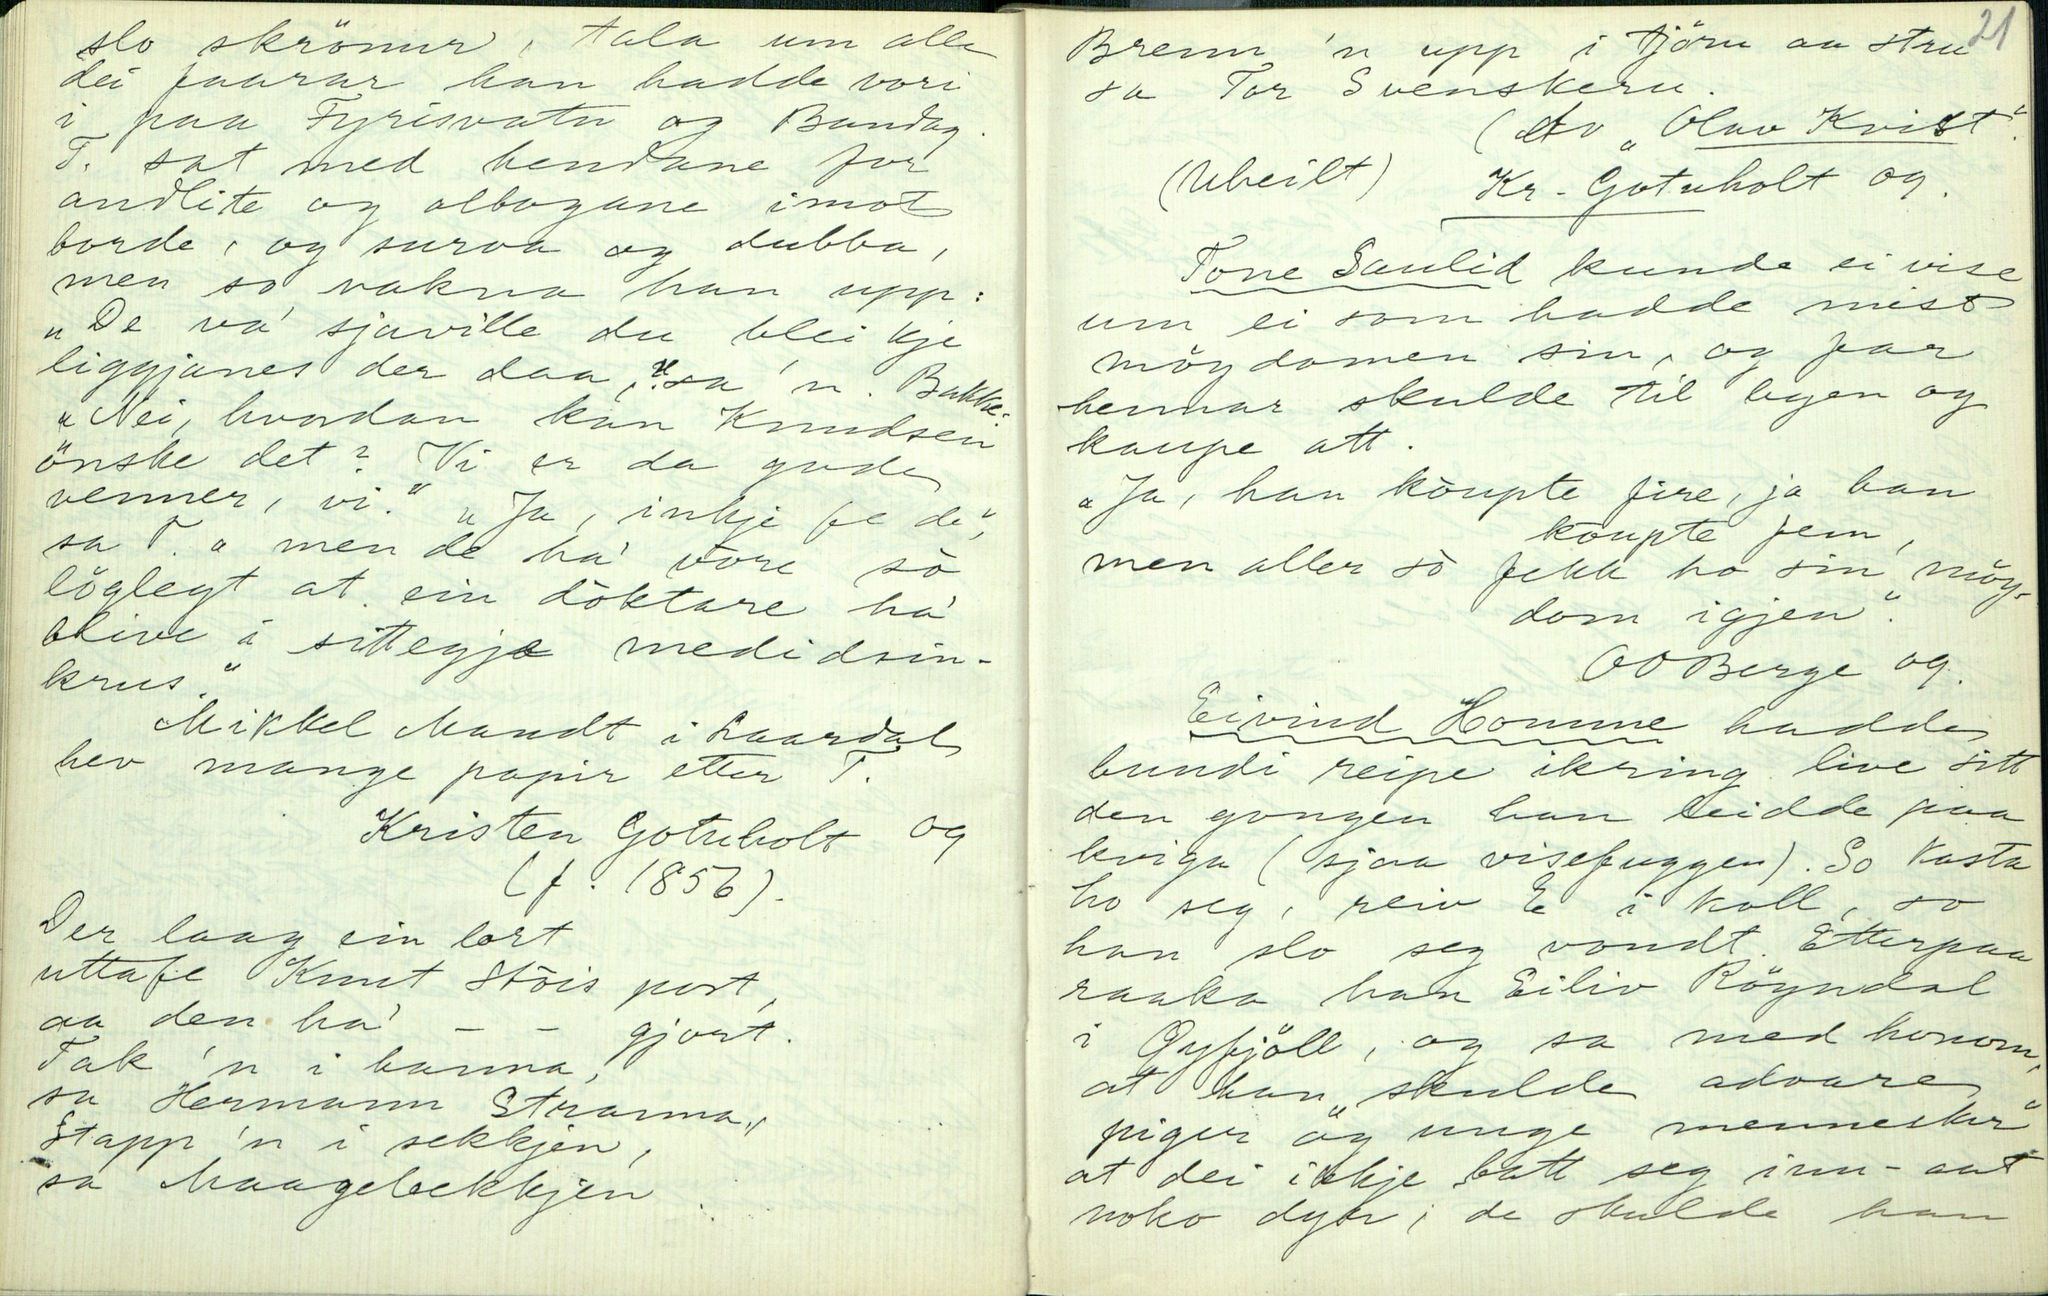 slo skrönur, tala um alle
dei faarar han hadde vori
i paa Fyrisvatn og Bandag.
T. sat med hendane for
andlite og albogane imot
borde, og surva og dubba,
men so vakna han upp:
"De va' sjaville du blei kje
liggjanes der daa," sa 'n. Bakke:
"Nei, hvordan kan Knudsen
önske det? Vi er da gode
venner, vi." "Ja, inkje fe de",
sa T. "men de ha' vöre sò
löglegt at ein döktare ha'
blive i sittegje medidsin-
krus."
Mikkel Mandt i Laardal
hev mange papir etter T.
Kristen Gotuholt og
(f. 1856).
Der laag ein lort
uttafe Knut Stöis port,
aa den ha' – – gjort.
Tak 'n i hanna,
sa Hermann Stranna,
Stapp 'n i sekkjen,
sa Maagebekkjen.
21
Brenn 'n upp i tjöru aa stru
sa Tor Svenskeru.
(Av "Olav Kvist".
(Uheilt) Kr. Gotuholt og.
Tone Saulid kunde ei vise
um ei som hadde mist
möydomen sin, og far
hennar skulde til byen og
kaupe att.
"Ja, han köupte fire, ja han
köupte fem,
men aller sò fekk ho sin möy-
dom igjen".
OO Berge og.
Eivind Homme hadde
bundi reipe ikring live sitt
den gongen han leidde paa
kviga (sjaa visefuggen). So kasta
ho seg, reiv E i koll, so
han slo seg vondt. Etterpaa
raaka han Eiliv Röyndal
i Öyfjöll, og sa med honom,
at han "skulde advare
piger og unge mennesker"
at dei inkje batt seg inn-aat
noko dyr; de skulde han